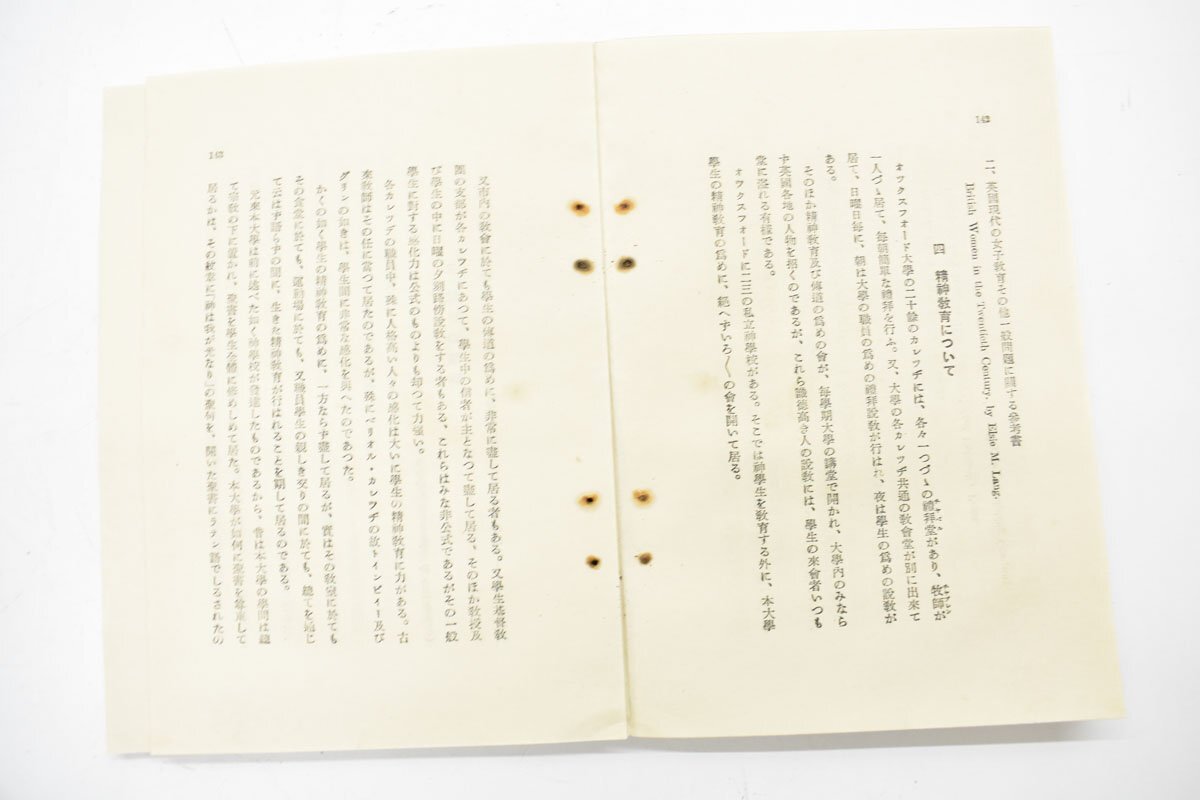 142
二、英國現代の女子教育その他一般問題に關する參考書
British Women in the Twentieth Century. by Elsie M. Lang.
四　精神教育について
オックスフォード大學の二十餘のカレッヂには、各々一つづゝの禮拜堂があり、牧師が
一人づゝ居て、毎朝簡單な禮拜を行ふ。又、大學の各カレッヂ共通の教會堂が別に出來て
居て、日曜日毎に、朝は大學の職員の爲めの禮拜説教が行はれ、夜は學生の爲めの説教が
ある。
そのほか精神教育及び傳道の爲めの會が、毎學期大學の講堂で開かれ、大學内のみなら
ず英國各地の人物を招くのであるが、これら識徳高き人の説教には、學生の來會者いつも
堂に溢れる有樣である。
オックスフォードに二三の私立神學校がある。そこでは神學生を教育する外に、本大學
學生の精神教育の爲めに、絶へずいろ〱の會を開いて居る。
143
又市内の教會に於ても學生の傳道の爲めに、非常に盡して居る者もある。又學生基督教
團の支部が各カレッヂにあつて、學生中の信者が主となつて盡して居る、そのほか教授及
び學生の中に日曜の夕刻路傍説教をする者もある、これらはみな非公式であるがその一般
學生に對する感化力は公式のものよりも却つて力強い。
各カレッヂの職員中、殊に人格高い人々の感化は大いに學生の精神教育に力がある。古
來教師はその任に當つて居たのであるが、殊にベリオル・カレッヂの故トインビィー及び
グリンの如きは、學生間に非常な感化を與へたのであつた。
かくの如く學生の精神教育の爲めに、一方ならず盡して居るが、實はその教室に於ても
その食堂に於ても、運動場に於ても、又職員學生の親しき交りの間に於ても、總てを通じ
て云はず語らずの間に、生きた精神教育が行はれることを期して居るのである。
元來本大學は前に述べた如く神學校が發達したものであるから、昔は本大學の學問は總
て宗教の下に置かれ、聖書を學生全體に修めしめて居た。本大學が如何に聖書を尊重して
居るかは、その紋章に「神は我が光なり」の聖句を、開いた聖書にラテン語でしるされたの